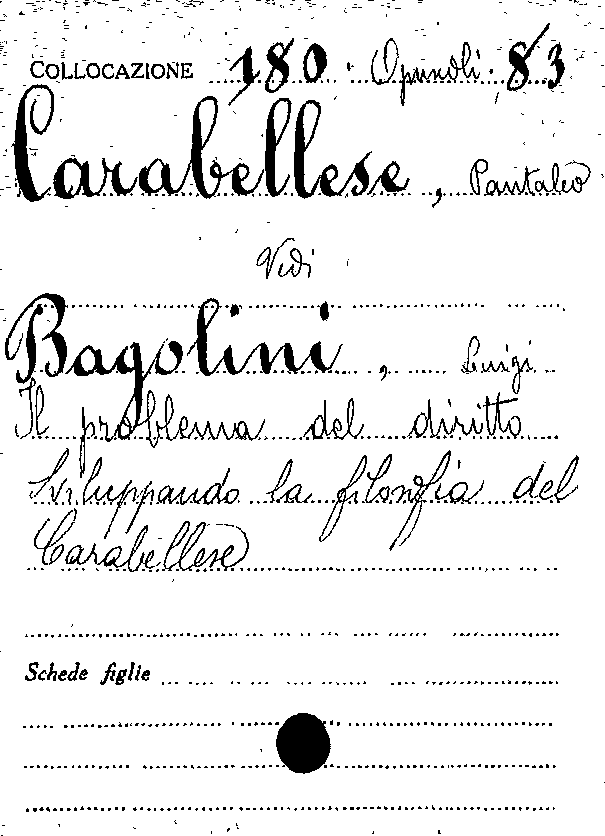 COLLOCAZIONE 180. Opuscoli. 83
Carabellese, Pantaleo
Vedi
Bagolini, Luigi
Il problema del diritto
Sviluppando la filosofia del
Carabellese
Schede figlie